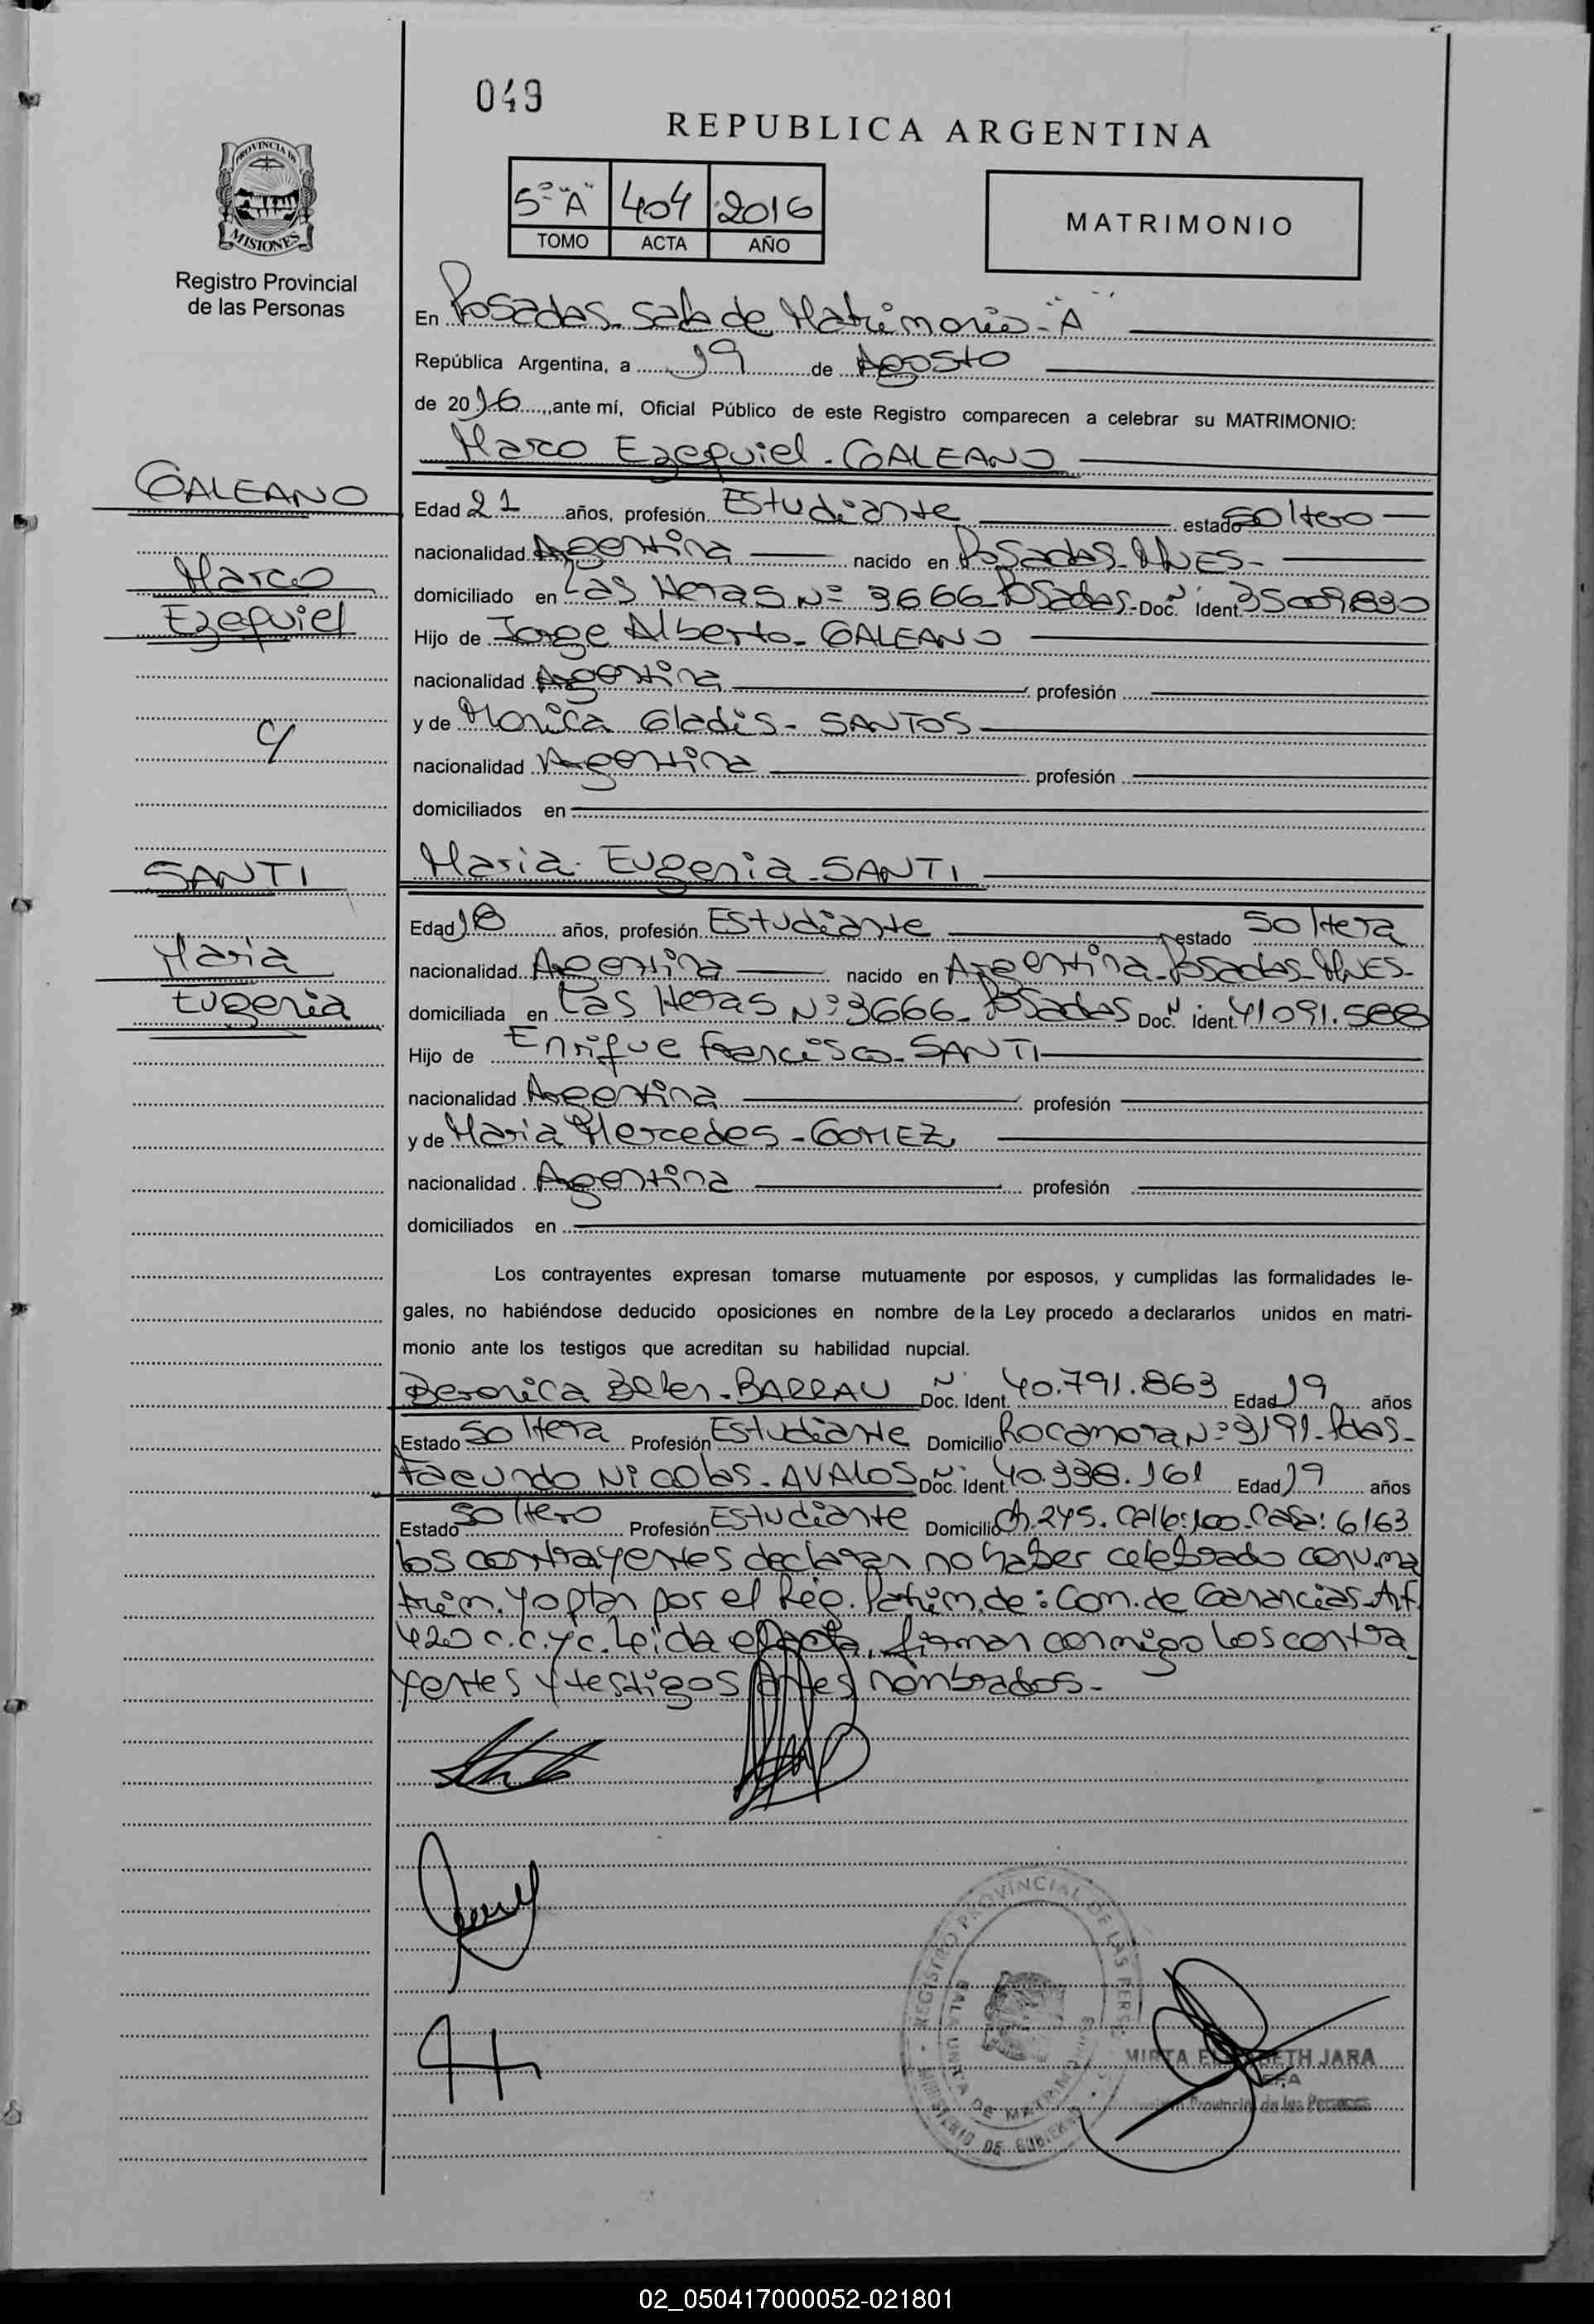 049
REPUBLICA ARGENTINA
PROVINCIA DE
MISIONES
Registro Provincial
de las Personas
5º "A" 404 2016
TOMO ACTA AÑO
MATRIMONIO
En Posadas. Sala de Matrimonio - "A"
República Argentina, a 19 de Agosto
de 2016, ante mí, Oficial Público de este Registro comparecen a celebrar su MATRIMONIO:
Marco Ezequiel - GALEANO
GALEANO
Marco
Ezequiel
c/
SANTI
Maria
Eugenia
Edad 21 años, profesión Estudiante estado Soltero
nacionalidad Argentina nacido en Posadas - Mnes -
domiciliado en Las Heras Nº 3666 - Posadas - Doc. Ident. 35009830
Hijo de Jorge Alberto - GALEANO
nacionalidad Argentina profesión
y de Monica Gladis - SANTOS
nacionalidad Argentina profesión
domiciliados en
Maria Eugenia - SANTI
Edad 18 años, profesión Estudiante estado Soltera
nacionalidad Argentina nacido en Argentina - Posadas - Mnes -
domiciliada en Las Heras Nº 3666 - Posadas Doc. Ident. 41091.588
Hijo de Enrique Francisco - SANTI
nacionalidad Argentina profesión
y de Maria Mercedes - GOMEZ
nacionalidad Argentina profesión
domiciliados en
Los contrayentes expresan tomarse mutuamente por esposos, y cumplidas las formalidades le-
gales, no habiéndose deducido oposiciones en nombre de la Ley procedo a declararlos unidos en matri-
monio ante los testigos que acreditan su habilidad nupcial.
Beronica Belen - BARRAU Doc. Ident. 40.791.863 Edad 19 años
Estado Soltera Profesión Estudiante Domicilio Rocamora Nº 3191 - Pdas -
Facundo Nicolas - AVALOS Doc. Ident. 40.338.161 Edad 19 años
Estado Soltero Profesión Estudiante Domicilio Ch. 245. Calle: 100 - Casa: 6163
Los contrayentes declaran no haber celebrado conv. ma
trim. y optan por el Reg. Patrim. de: Com. de Ganancias - Art.
420 C.C. y C. Leida el Acta, firman conmigo los contra
yentes y testigos antes nombrados -
REGISTRO PROVINCIAL DE LAS PERSONAS
SALA UNITA DE MATRIMONIOS
MINISTERIO DE GOBIERNO
MIRTA ELIZABETH JARA
JEFA
Provincial de las Personas
02_050417000052-021801